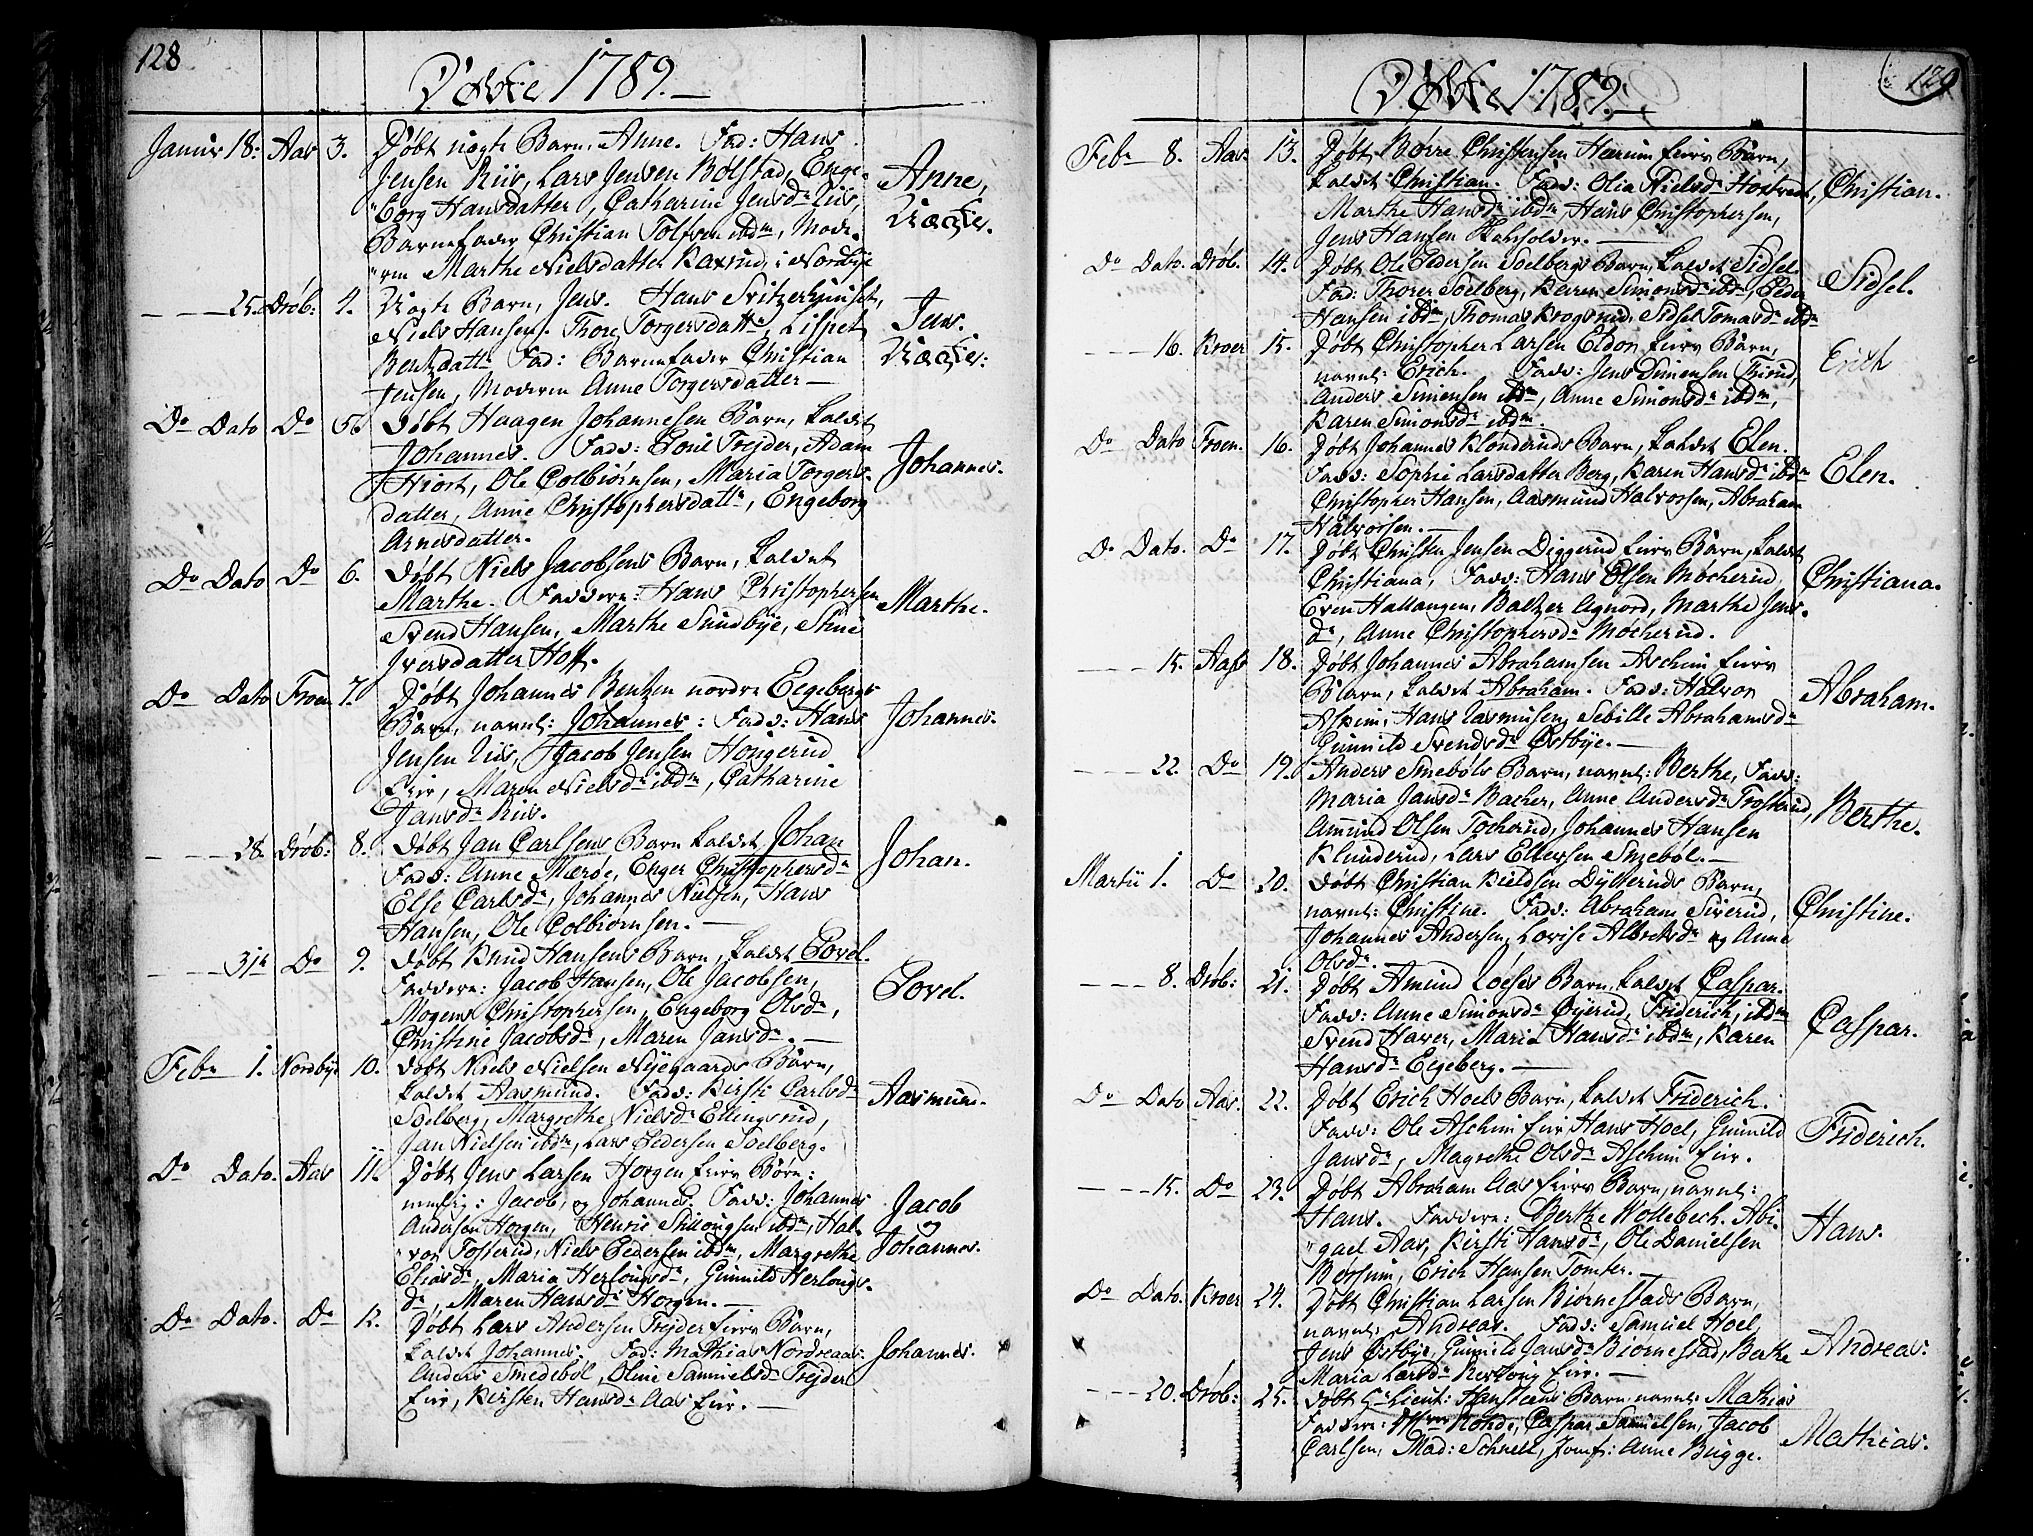 128
Døbte 1789.
Januar 18: Aas 3. Døbt uægte Barn, Anne. Fad: Hans
Jensen Riis, Lars Jensen Bølstad, Enge-
"borg Hansdatter, Catharine Jensdr Riis,
Barnefader Christian Tolfsen ibdm, Mode-
"ren Marthe Nielsdatter Kaxrud, i Nordbye
Anne,
Uægte.
- - - 25. Drøb: 4. Uægte Barn, Jens. Hans
Niels Hansen. Thore Torgersdattr, Lispet
Bentsdattr Fad: Barnefader Christian
Jensen, Moderen Anne Torgersdatter —
Jens.
Uægte:
Do Dato Do 5. Døbt Haagen Johannesen Barn, kaldet
Johannes. Fadd: Poul Trejder, Adam
Hiort, Ole Colbiørnsen, Maria Torgers-
datter, Anne Christophersdattr, Engeborg
Arnesdatter.
Johannes.
Do Dato Do 6. Døbt Niels Jacobsens Barn, kaldet
Marthe. Faddere: Hans Christophersen
Svend Hansen, Marthe Sundbye, Stine
Iversdatter Hoff.
Marthe.
Do Dato Froen 7. Døbt Johannes Bentsen nordre Eegebergs
Barn, navnl: Johannes: Fadd: Hans
Jensen Riis, Jacob Jensen Hougerud
Eier, Maren Nielsdr ibdm, Catharine
Jansdr Riis.
Johannes.
- - - 28. Drøb: 8. Døbt Jan Carlsens Barn kaldet Johan
Fadd: Anne Mærøe, Enger Christophersdr
Else Carlsdr, Johannes Nielsen, Hans
Hansen, Ole Colbiørnsen. —
Johan.
- - - 31te Do 9. Døbt Knud Hansens Barn, kaldet Povel.
Faddere: Jacob Hansen, Ole Jacobsen,
Mogens Christophersen, Engeborg Olsdr,
Christine Jacobsdr, Maren Jansdr. —
Povel.
Febr 1. Nordbye 10. Døbt Niels Nielsen Nyegaards Barn,
kaldet Aasmund. Fadd: Kersti Carlsdr
Solberg, Margrethe Nielsdr Ellingsrud,
Jan Nielsen ibdm, Lars Pedersen Soelberg.
Aasmund.
Do Dato. Aas 11. Døbt Jens Larsen Horgen Eiers Børn:
nemlig: Jacob, og Johannes. Fadd: Johannes
Andersen Horgen, Henric ibdm, Hal-
"vor Fosterud, Niels Pedersen ibdm, Margrethe
Eliasdr, Maria Herlougsdr, Gunnild Herlougs-
dr, Maren Hansdr Horgen. —
Jacob
og
Johannes.
Do Dato. Do 12. Døbt Lars Andersen Trejder Eiers Barn,
kaldet Johannes. Fad: Mathias Nordreaas
Anders Smedebøl, Oline Samuelsdr Trejder
Eier, Kirsten Hansdr Aas Eier. —
Johannes.
129
Døbte 1789.
Febr 8. Aas. 13. Døbt Børre Christensen Harum Eiers Barn,
kaldet Christian. Fadd: Olia Nielsdr
Marthe Hansdr ibdm, Hans Christophersen,
Jens Hansen
Christian.
Do Dato. Drøb. 14. Døbt Ole Pedersen Soelbergs Barn, kaldet Sidsel.
Fad: Thorer Soelberg, Karen Simonsdr ibdm, Peder
Hansen ibdm, Thomas Krogsrud, Sidsel Tomasdr ibdm
Sidsel.
- - - 16. Kroer 15. Døbt Christopher Larsen Eldor Eiers Barn,
navnl: Erich. Fadd: Jens Simensen
Anders Simensen ibdm, Anne Simonsdr ibdm,
Karen Simonsdr ibdm.
Erich
Do Dato Froen. 16. Døbt Johannes Klonderuds Barn, kaldet Elen.
Fadd: Sophie Larsdatter Berg, Karen Hansdr ibdm
Christopher Hansen, Aasmund Halvorsen, Abraham
Halvorsen. —
Elen.
Do Dato. Do 17. Døbt Christen Jensen Diggerud Eiers Barn, kaldet
Christiana, Fadd: Hans Olsen Mocherud,
Even Hallangen, Baltzer Agnord, Marthe Jens-
dr, Anne Christophersdr Mocherud.
Christiana.
- - - 15. Aas 18. Døbt Johannes Abrahamsen Aschim Eiers
Barn, kaldet Abraham. Fadd: Halvor
Askim, Hans Rasmusen, Sebille Abrahamsdr
Gunnild Svendsdr Østbye. —
Abraham.
- - - 22. Do 19. Anders Smebøls Barn, navnl: Berthe, Fadd:
Maria Jansdr Bacher, Anne Andersdr Frosterud,
Amund Olsen Tocherud, Johannes Hansen
Klunderud, Lars Ellevsen Smebøl. —
Berthe.
Martii 1. Do 20. Døbt Christian Kieldsen Dytteruds Barn,
navnl: Christine. Fadd: Abraham Siverud,
Johannes Andersen, Lovise Albretsdr og Anne
Olsdr.
Christine.
- - - 8. Drøb: 21. Døbt Amund Løeses Barn, kaldet Caspar.
Fadd: Anne Simonsdr Øyerud, Friderich ibdm
Svend Haver, Maria Hansdr ibdm, Karen
Hansdr Eegeberg. —
Caspar.
Do Dato Aas. 22. Døbt Erich Hoels Barn, kaldet Friderich.
Fadd: Ole Aschim Eier Hans Hoel, Gunnild
Jansdr, Magrethe Olsdr Aschim Eier.
Friderich.
- - - 15. Do 23. Døbt Abraham Aas Eiers Barn, navnl:
Hans. Faddere: Berthe Wollebech. Abi-
"gael Aas, Kersti Hansdr, Ole Danielsen
Berrum, Erich Hansen Tomter. —
Hans.
Do Dato. Kroer 24. Døbt Christian Larsen Biørnestads Barn,
navnl: Andreas. Fadd: Samuel Hoel,
Jens Østbye, Gunnild Jansdr Biørnestad, Berthe
Maria Larsdr Eier. —
Andreas.
- - - 20. Drøb: 25. Døbt Hr Lieut: Hansteens Barn navnl: Mathias
Faddere: Hr Rohde, Caspar Samuelsen, Jacob
Carlsen, Mad: Schnell, Jomf: Anne Bugge.
Mathias.